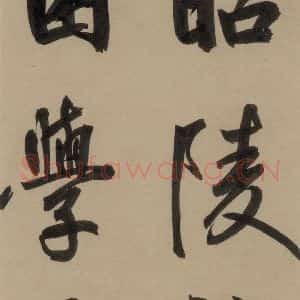 昭陵
學
Shufawang.CN